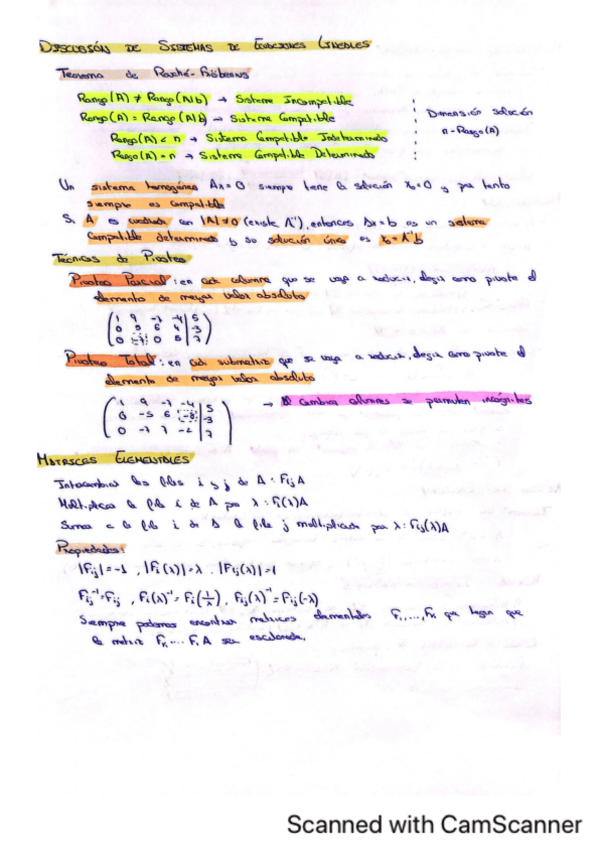 DISCUSIÓN DE SISTEMAS DE ECUACIONES LINEALES
Teorema de Rouché-Fröbenius
Rango(A) ≠ Rango(A|b) → Sistema Incompatible
Rango(A) = Rango(A|b) → Sistema Compatible
Rango(A) < n → Sistema Compatible Indeterminado
Rango(A) = n → Sistema Compatible Determinado
Dimensión solución
n - Rango(A)
Un sistema homogéneo Ax=0 siempre tiene la solución x₀=0 y por tanto
siempre es compatible
Si A es cuadrada con |A|≠0 (existe A⁻¹), entonces Ax=b es un sistema
compatible determinado y su solución única es x₀=A⁻¹b
Técnicas de Pivoteo
Pivoteo Parcial: en cada columna que se vaya a reducir, elegir como pivote el
elemento de mayor valor absoluto
1 9 -7 -4 | 5
0 5 6 4 | -3
0 -7 0 8 | 7
Pivoteo Total: en cada submatriz que se vaya a reducir, elegir como pivote el
elemento de mayor valor absoluto
1 9 -7 -4 | 5
0 -5 6 -8 | -3
0 -7 7 -2 | 7
→ Al cambiar columnas se permutan incógnitas
MATRICES ELEMENTALES
Intercambiar las filas i y j de A: FijA
Multiplicar la fila i de A por λ: Fi(λ)A
Sumar a la fila i de A la fila j multiplicada por λ: Fij(λ)A
Propiedades:
|Fij|=-1, |Fi(λ)|=λ, |Fij(λ)|=1
Fij⁻¹=Fij, Fi(λ)⁻¹=Fi(1/λ), Fij(λ)⁻¹=Fij(-λ)
Siempre podemos encontrar matrices elementales F₁,...,Fk que hagan que
la matriz Fk...F₁A sea escalonada.
Scanned with CamScanner